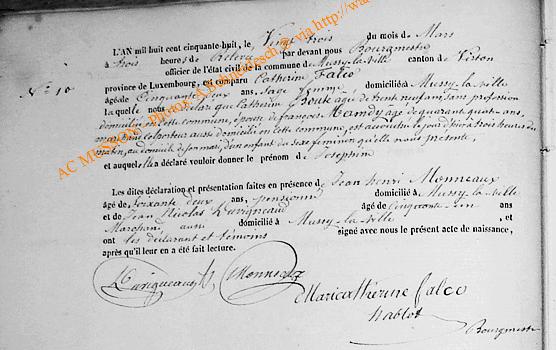 N.° 10
L'AN mil huit cent cinquante-huit, le Vingt trois du mois de Mars
à trois heures de relevée par devant nous Bourgmestre
officier de l'état civil de la commune de Mussy-la-Ville canton de Virton
province de Luxembourg, est comparu Catherine Falco
âgée de Cinquante ans, Sage femme domicilié à Mussy-la-Ville
laquelle nous a déclaré que Catherine agé de trente neuf ans, sans profession
domicilié en cette commune, épouse de françois Hamdy age de quarante quatre ans,
aussi domicilié en cette commune, est accouchée le jour d'hier à trois heures du
matin, au domicile de son mari, d'un enfant du sexe féminin qu'elle nous présente,
et auquel elle a déclaré vouloir donner le prénom de Joséphine
Les dites déclaration et présentation faites en présence de Jean henri Monneaux
âgé de Soixante deux ans, pensionné domicilié à Mussy-la-Ville
et de Jean Nicolas Duvigneaud âgé de Cinquante ans
Marchand, aussi domicilié à Mussy-la-Ville, et
ont les déclarant et témoins signé avec nous le présent acte de naissance,
après qu'il leur en a été fait lecture.
Monneaux
Marie catherine falco
nablot
Bourgmestre
AC MUSSON - Photos: A. Bonnefesch @ via http://wa